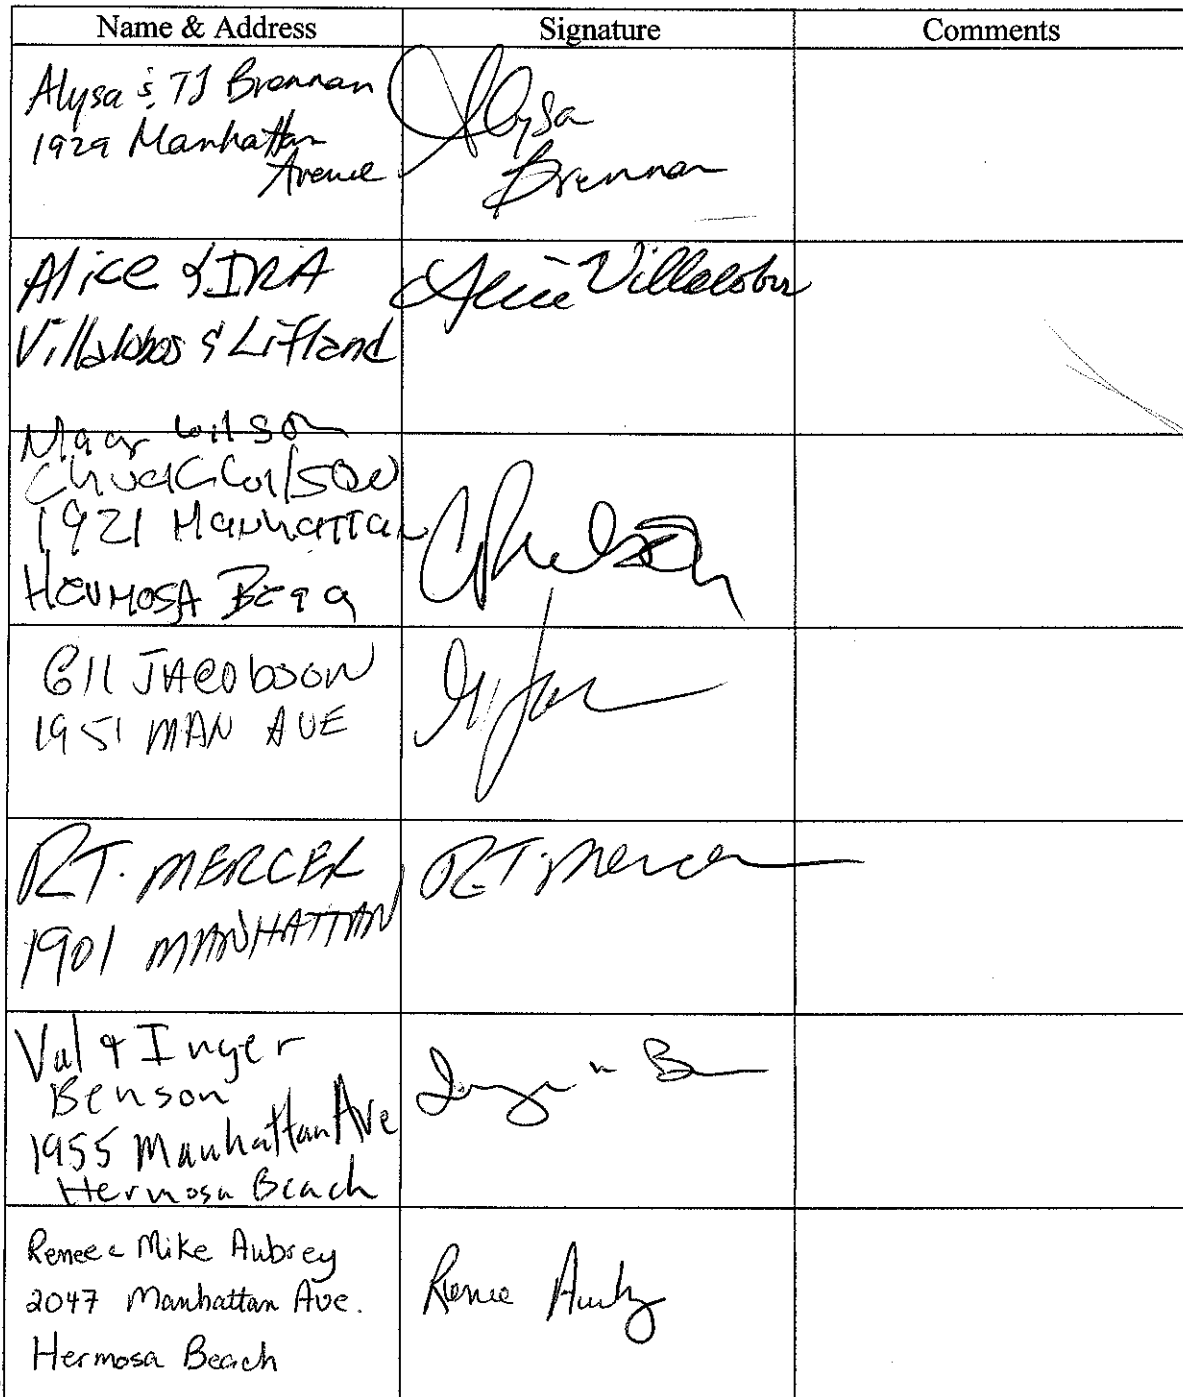 Name & Address Signature Comments
Alysa & TJ Brennan
1929 Manhattan
Avenue
Alysa
Brennan
Alice & IRA
Villalobos & Lifland
Alice Villalobos
Wilson
Chuck Wilson
1921 Manhattan
Hermosa
Gil Jacobson
1951 MAN AVE
R.T. MERCER
1901 MANHATTAN
RT Mercer
Val & Inger
Benson
1955 Manhattan Ave
Hermosa Beach
Renee & Mike Aubrey
2047 Manhattan Ave.
Hermosa Beach
Renee